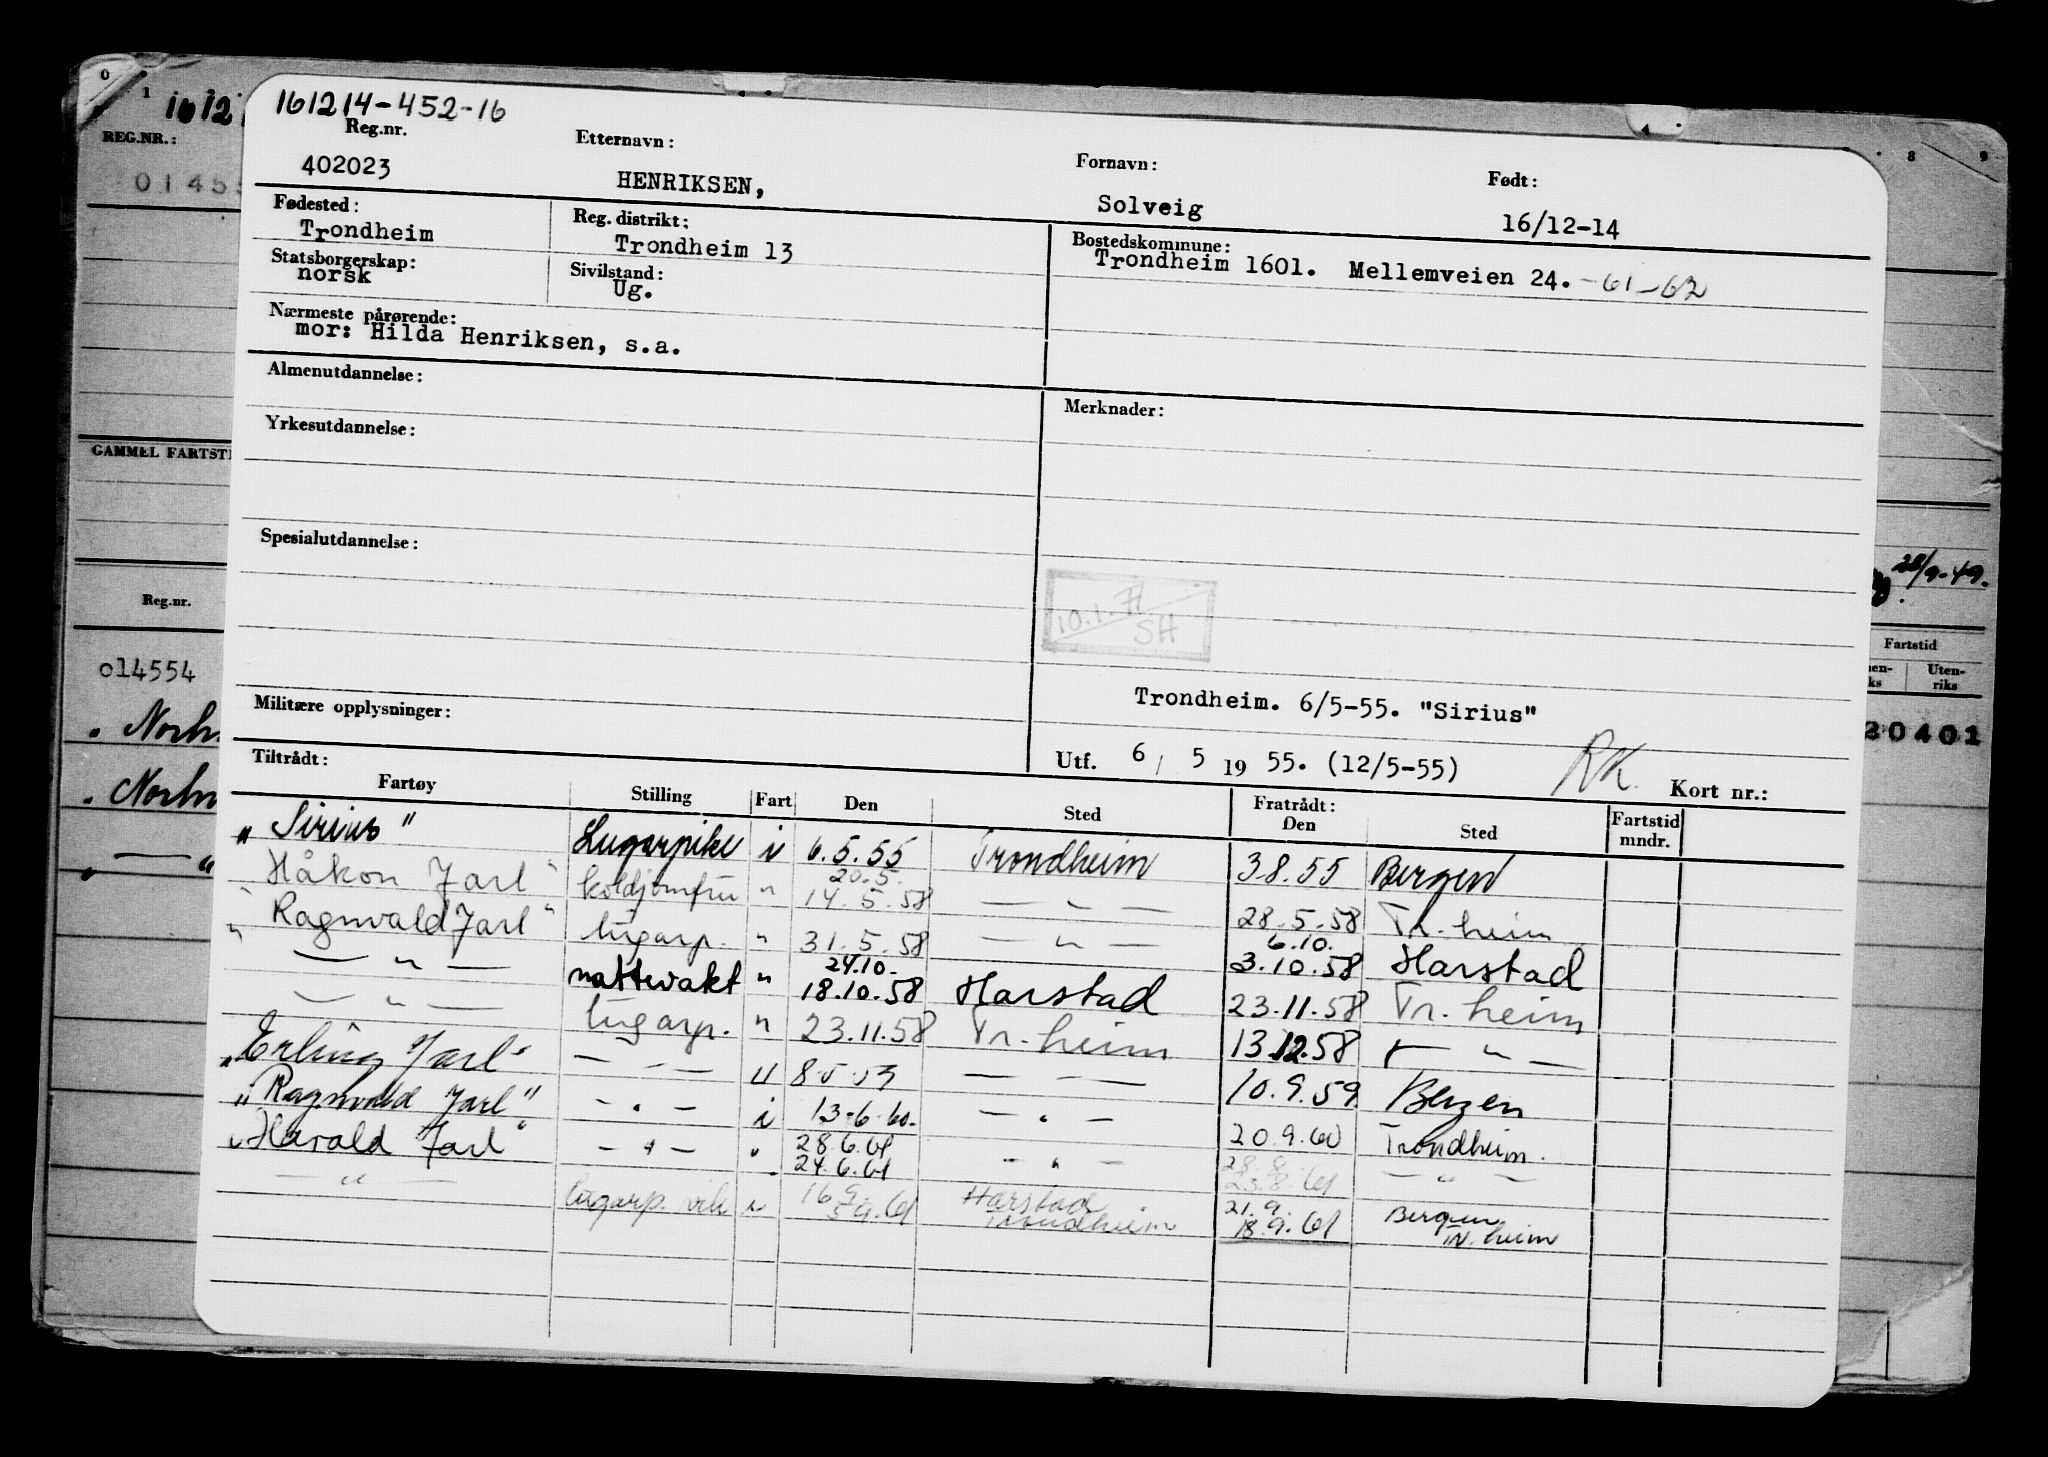 161214-452-16
Reg.nr. Etternavn: Fornavn: Født:
402023 HENRIKSEN, Solveig 16/12-14
Fødested: Reg. distrikt: Bostedskommune:
Trondheim Trondheim 13 Trondheim 1601. Mellemveien 24. -61-62
Statsborgerskap: Sivilstand:
norsk Ug.
Nærmeste pårørende:
mor: Hilda Henriksen, s.a.
Almenutdannelse: Merknader:
Yrkesutdannelse:
Spesialutdannelse:
10.1.71
SH
Militære opplysninger: Trondheim. 6/5-55. "Sirius"
Utf. 6/ 5 19 55. (12/5-55) RK. Kort nr.:
Tiltrådt: Fratrådt:
Fartøy Stilling Fart Den Sted Den Sted Fartstid mndr.
"Sirius" Lugarpike i 6.5.55 Trondheim 3.8.55 Bergen
20.5.
"Håkon Jarl" koldjomfru " 14.5.58 — " — 28.5.58 Tr.heim
"Ragnvald Jarl" lugarp. " 31.5.58 — " — 6.10. 3.10.58 Harstad
— " — nattevakt " 24.10. 18.10.58 Harstad 23.11.58 Tr.heim
— " — lugarp. " 23.11.58 Tr.heim 13.12.58 — " —
"Erling Jarl" — " — " — " — 10.9.59 Bergen
"Ragnvald Jarl" — " — i 13.6.60. — " — 20.9.60 Trondheim.
"Harald Jarl" — " — " 28.6.61 24.6.61 — " — 28.8. 23.8.61 — " —
— " — lugarp. vik i 16.9. 5.9.61 Harstad Trondheim 21.9. 18.9.61 Bergen Tr.heim
0 1
REG.NR.:
GAMMEL FARTSTI
Reg.nr.
014554
4 8 9
28/9-49.
Fartstid
Uten-
riks
20401